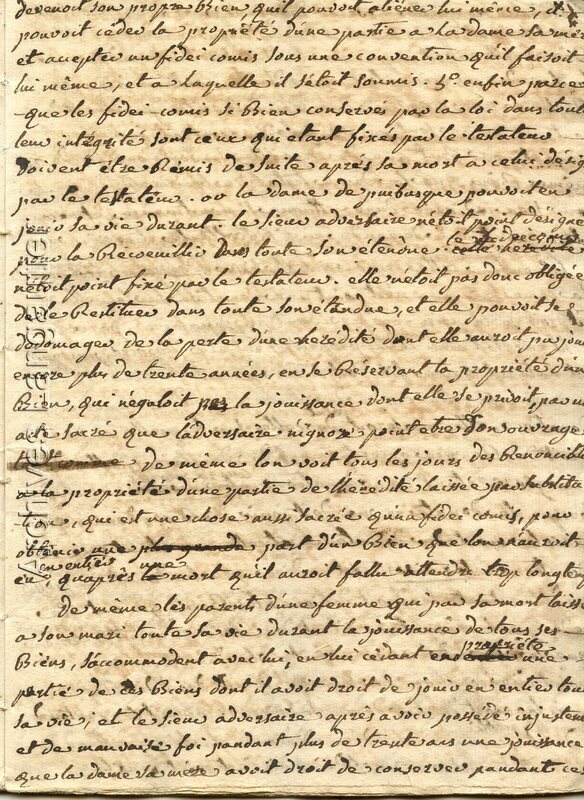 devenoit son propre Bien quil pouvoit aliéner lui même, et
pouvoit ceder la propriété d'une partie a la dame sa mere
et accepter un fidei comis sous une convention quil faisoit
lui même, et a laquelle il sétoit soumis. 5°. enfin parce
que les fidei-comis si Bien conservés par la loi dans toute
leur intégrité sont ceux qui etant fixés par le testateur
doivent être Remis de suite aprés sa mort a celui désig
par le testateur. or la dame de puibusque pouvoit en
jouir sa vie durant. le sieur adversaire nétoit point désigné
pour la Recoeuillir dans toute son étendue. le fideicomis
nétoit point fixé par le testateur. elle nétoit pas donc obligée
de le Restituer dans toute son étandue, et elle pouvoit se
dédomager de la perte d'une heredité dont elle auroit pu jouir
encore plus de trente années, en se Reservant la propriété d'un
Bien, qui négaloit pas la jouissance dont elle se privoit, par un
acte sacré que l'adversaire n'ignore point etre son ouvrage
de même lon voit tous les jours des Renoncia
a la propriété d'une partie de lhérédité laissée par substitu
tion, qui est une chose aussi sacrée qu'un fidei comis, pour
obtenir une plus grande part d'un Bien que lon nauroit
en, en entier quaprès une mort quil auroit fallu attendre trop longtem
de même les parents d'une femme qui par sa mort laisse
a son mari toute sa vie durant la jouissance de tous ses
Biens, s'accommodent avec lui, en lui cédant en propriété une
partie de ces Biens dont il avoit droit de jouir en entier tou
sa vie; et le sieur adversaire aprés avoir possédé injustem
et de mauvaise foi pandant plus de trente ans une jouissance
que la dame sa mere avoit droit de conserver pandant ces
Archives-Lang